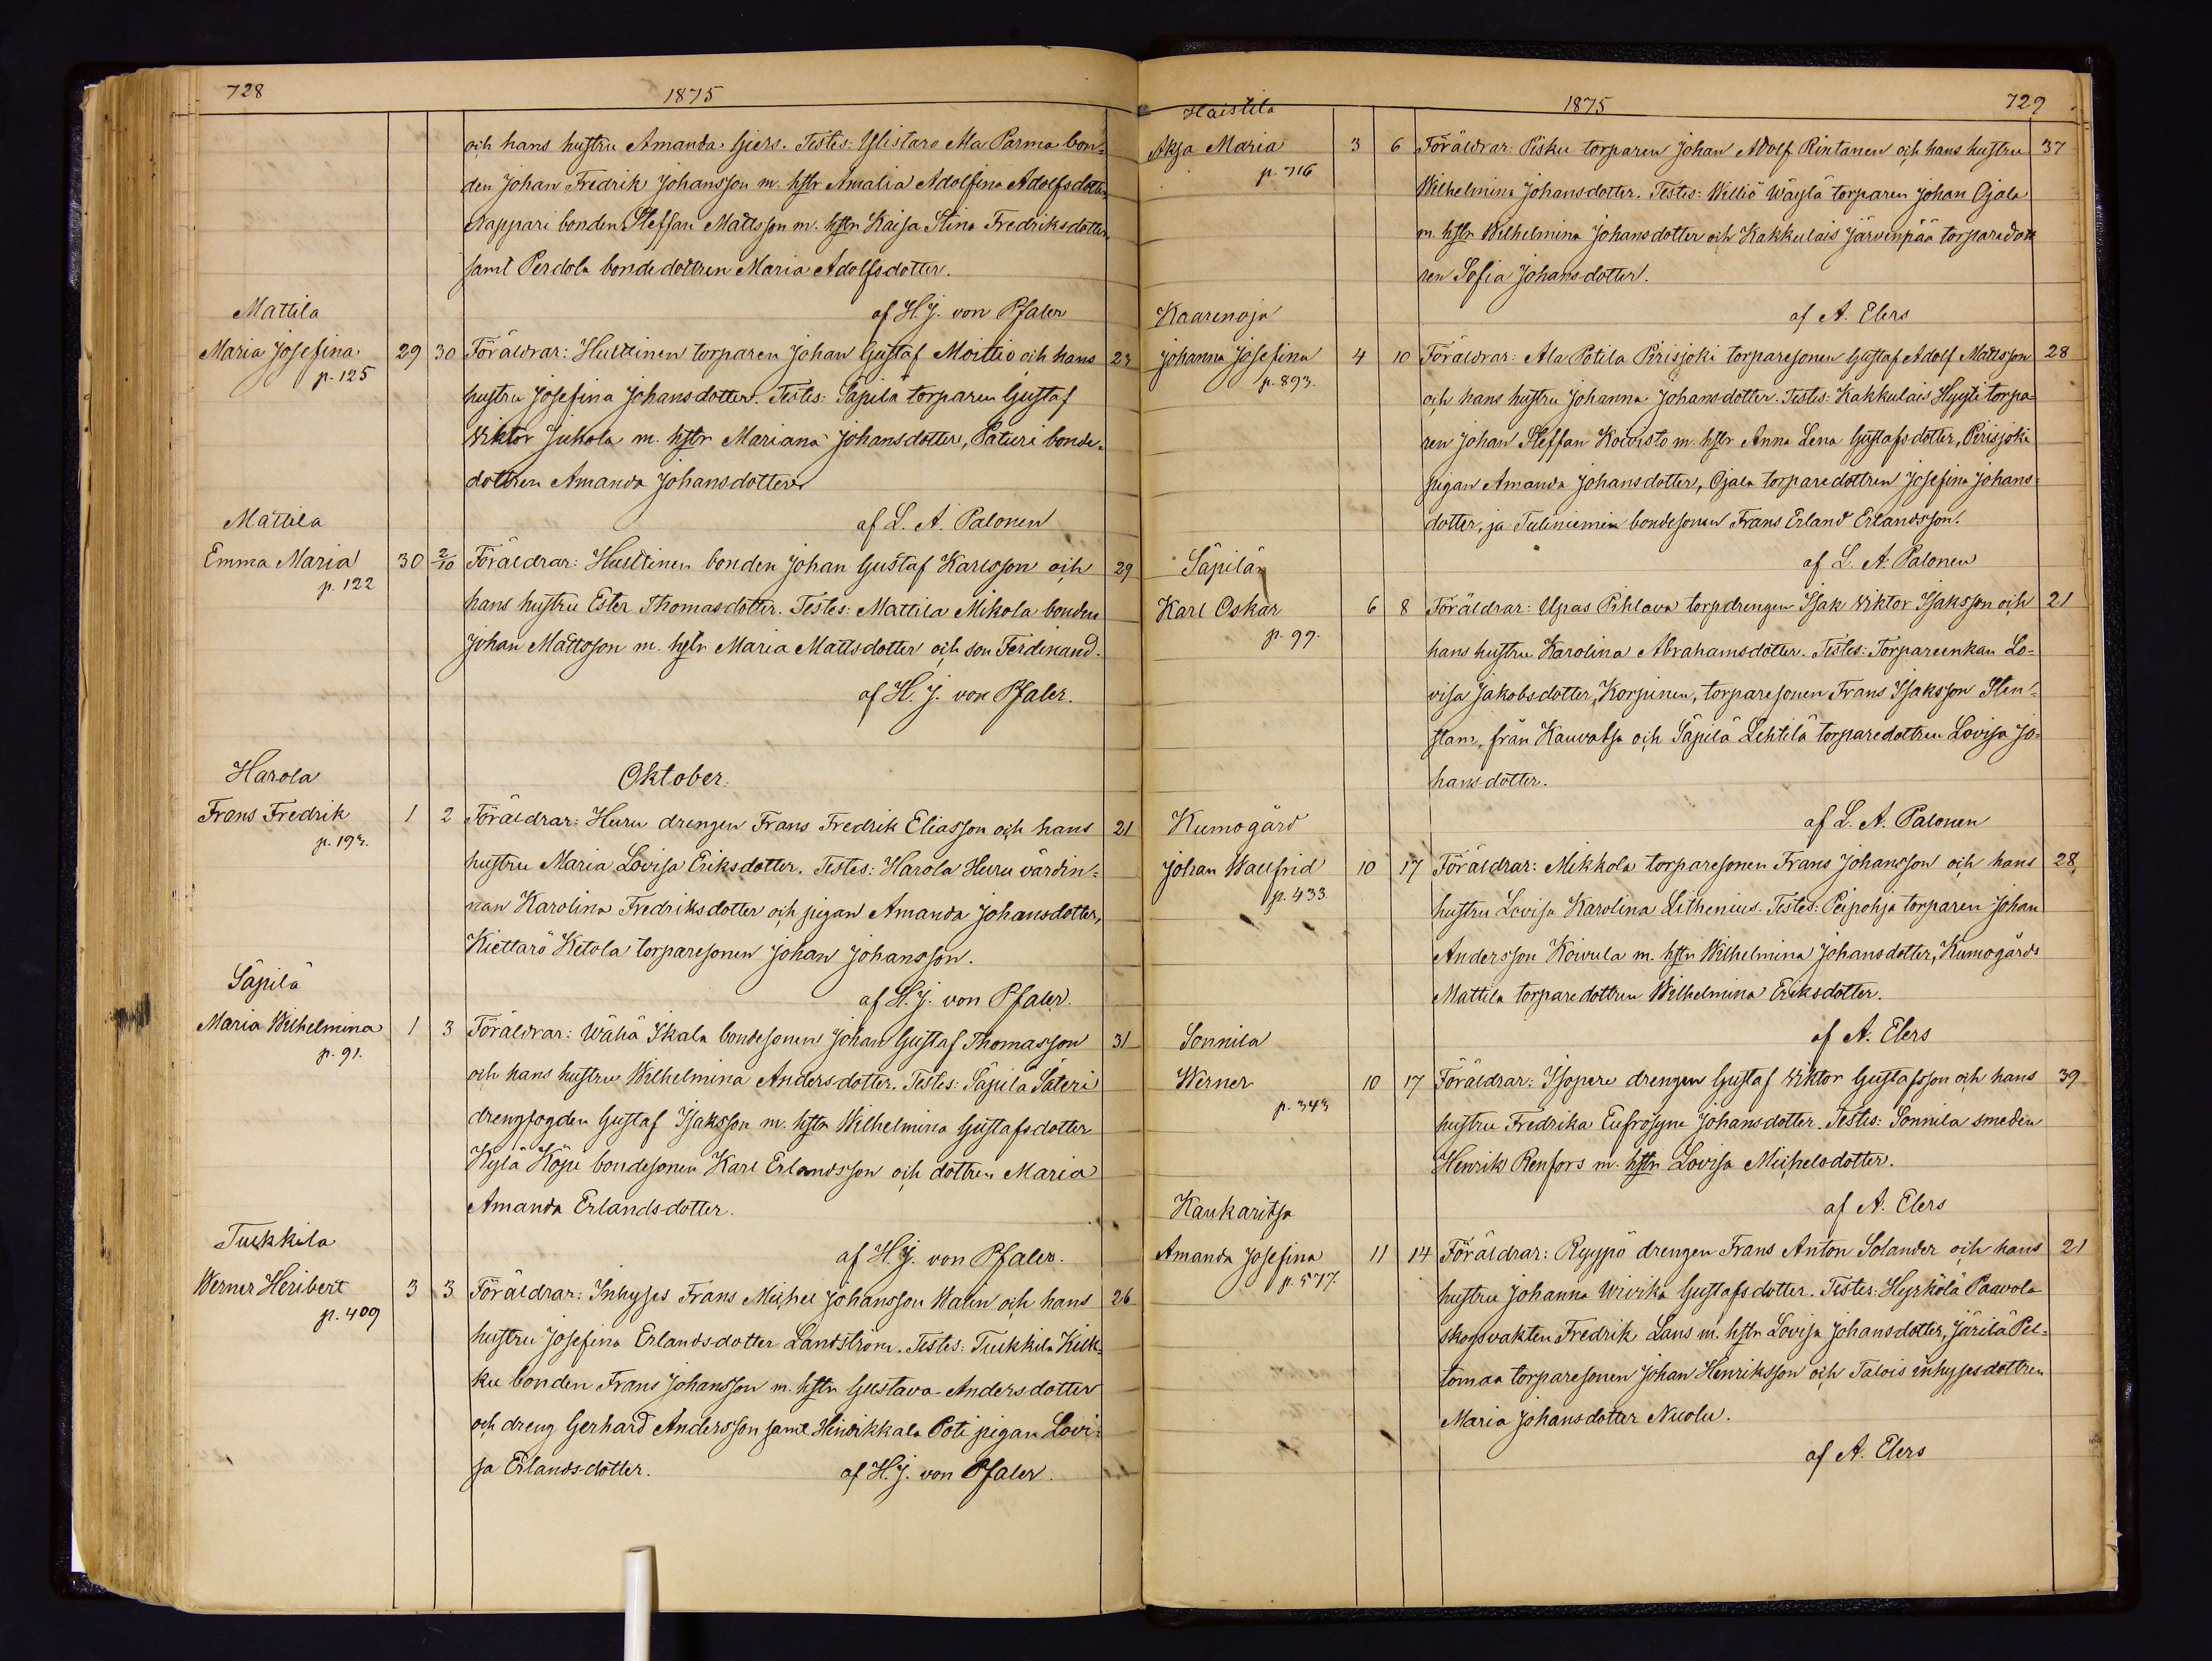 728
1875
och hans hustru Amanda Giers. Testes: Ylistaro Ala Parma bon=
den Johan Fredrik Johansson m. hstr Amalia Adolfina Adolfsdotter,
Nappari bonden Steffan Mattsson m. hstr Kaisa Stina Fredriksdotter,
samt Perdola bondedottren Maria Adolfsdotter.
Mattila af H. J. von Pfaler
Maria Josefina 29 30 Föräldrar: Huittinen torparen Johan Gustaf Moittio och hans 23
p. 125 hustru Josefina Johansdotter. Testes: Säpilä torparen Gustaf
Wiktor Juhola m. hstr Mariana Johansdotter, Paturi bonde-
dottren Amanda Johansdotter
Mattila af L. A. Palonen
Emma Maria 30 2/10 Föräldrar: Huittinen bonden Johan Gustaf Karlsson och 29
p. 122 hans hustru Ester Thomasdotter. Testes: Mattila Mikola bonden
Johan Mattsson m. hstr Maria Mattsdotter och son Ferdinand.
af H. J. von Pfaler.
Harola Oktober.
Frans Fredrik 1 2 Föräldrar: Huru drengen Frans Fredrik Eliasson och hans 21
p. 193. hustru Maria Lovisa Eriksdotter. Testes: Harola Huru värdin=
nan Karolina Fredriksdotter och pigan Amanda Johansdotter,
Kiettarö Ketola torparesonen Johan Johansson.
Säpilä af H. J. von Pfaler.
Maria Wilhelmina 1 3 Föräldrar: Wähä Skala bondesonen Johan Gustaf Thomasson 31
p. 91. och hans hustru Wilhelmina Andersdotter. Testes: Säpilä Säteri
drengfogden Gustaf Isaksson m. hstr Wilhelmina Gustafsdotter
Kylä Köpi bondesonen Karl Erlandsson och dottren Maria
Amanda Erlandsdotter.
Tukkila af H. J. von Pfaler.
Werner Heribert 3 3 Föräldrar: Inhyses Frans Michel Johansson Walin och hans 26
p. 409 hustru Josefina Erlandsdotter Landström. Testes: Tukkila Kilk=
ku bonden Frans Johansson m. hstr Gustava Andersdotter
och dreng Gerhard Andersson samt Hinrikkala Poti pigan Lovi=
sa Erlandsdotter. af H. J. von Pfaler.
1875 729
Haistila
Aksa Maria 3 6 Föräldrar: Pisku torparen Johan Adolf Rintanen och hans hustru 37
p. 716 Wilhelmina Johansdotter. Testes: Williö Wäylä torparen Johan Ojala
m. hstr Wilhelmina Johansdotter och Kakkulais Järvenpää torparedott
ren Sofia Johansdotter.
Kaarenoja af A. Elers
Johanna Josefina 4 10 Föräldrar: Ala Potila Pirisjoki torparesonen Gustaf Adolf Mattsson 28
p. 893. och hans hustru Johanna Johansdotter. Testes: Kakkulais Hyyti torpa=
ren Johan Steffan Koivisto m. hstr Anna Lena Gustafsdotter, Pirisjoki
pigan Amanda Johansdotter, Ojala torparedottren Josefina Johans=
dotter, ja Tuliniemin bondesonen Frans Erland Erlandsson.
Säpilä af L. A. Palonen
Karl Oskar 6 8 Föräldrar: Upas Pihlava torpdrengen Isak Wiktor Isaksson och 21
p. 99. hans hustru Karolina Abrahamsdotter. Testes: Torpareenkan Lo=
visa Jakobsdotter, Korpinen, torparesonen Frans Isaksson Sten=
stam, från Kauvatsa och Säpilä Lehtilä torparedottren Lovisa Jo=
hansdotter.
Kumogård af L. A. Palonen
Johan Wallfrid 10 17 Föräldrar: Mikkola torparesonen Frans Johansson och hans 28
p. 433 hustru Lovisa Karolina Lithenius. Testes: Peipohja torparen Johan
Andersson Koivula m. hstr Wilhelmina Johansdotter, Kumogårds
Mattila torparedottren Wilhelmina Eriksdotter.
Sonnila af A. Elers
Werner 10 17 Föräldrar: Isopere drengen Gustaf Wiktor Gustafsson och hans 39
p. 343 hustru Fredrika Eufrosyne Johansdotter. Testes: Sonnila smeden
Henrik Renfors m. hstr Lovisa Michelsdotter.
Kaukaritsa af A. Elers
Amanda Josefina 11 14 Föräldrar: Ryyppö drengen Frans Anton Solander och hans 21
p. 577. hustru Johanna Wivika Gustafsdotter. Testes: Hyrkölä Paavola
skogsvakten Fredrik Lans m. hstr Lovisa Johansdotter, Järilä Pel=
tomaa torparesonen Johan Henriksson och Talois inhysesdottren
Maria Johansdotter Nuolu.
af A. Elers